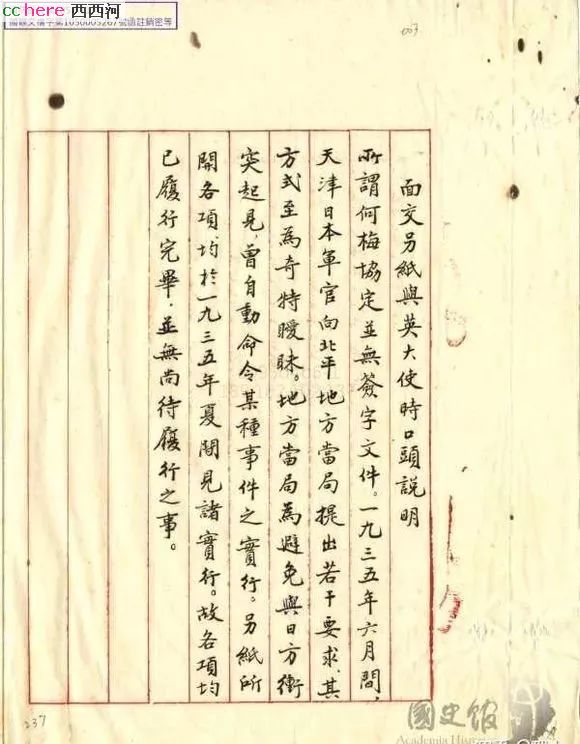 cchere 西西河
國史文檔字第1030003267號函註銷密等
003
面交另紙與英大使時口頭說明
所謂何梅協定並無簽字文件。一九三五年六月間,
天津日本軍官向北平地方當局提出若干要求,其
方式至為奇特曖昧。地方當局為避免與日方衝
突起見,曾自動命令某種事件之實行。另紙所
開各項,均於一九三五年夏間見諸實行。故各項均
已履行完畢,並無尚待履行之事。
237
國史館
Academia Historica